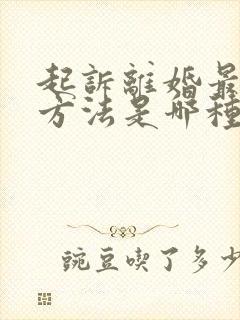 起訴離婚最
方法是哪種
豌豆喫了多少